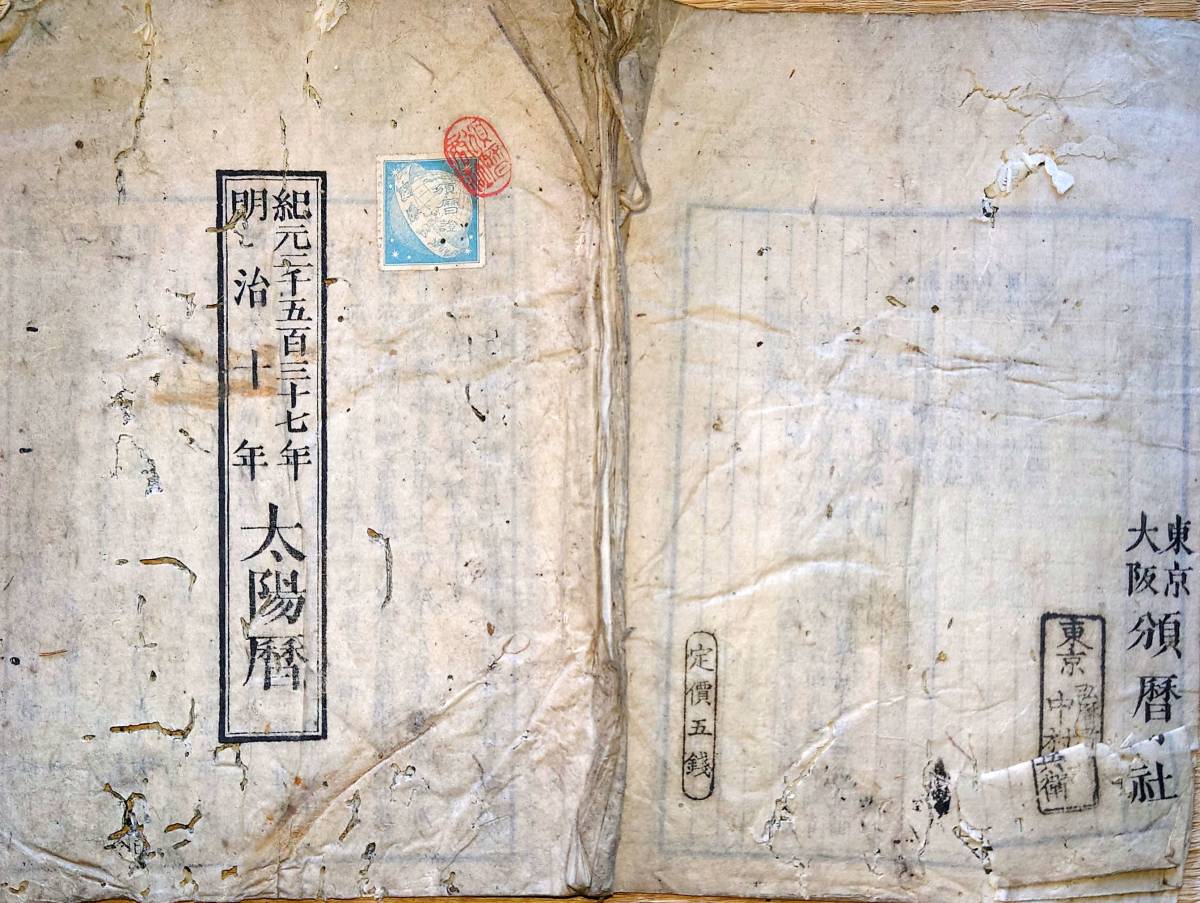 紀元二千五百三十七年
明治十年
太陽曆
頒曆證
定價五錢
東京
大阪
頒曆社
東京
弘曆
中村
衛